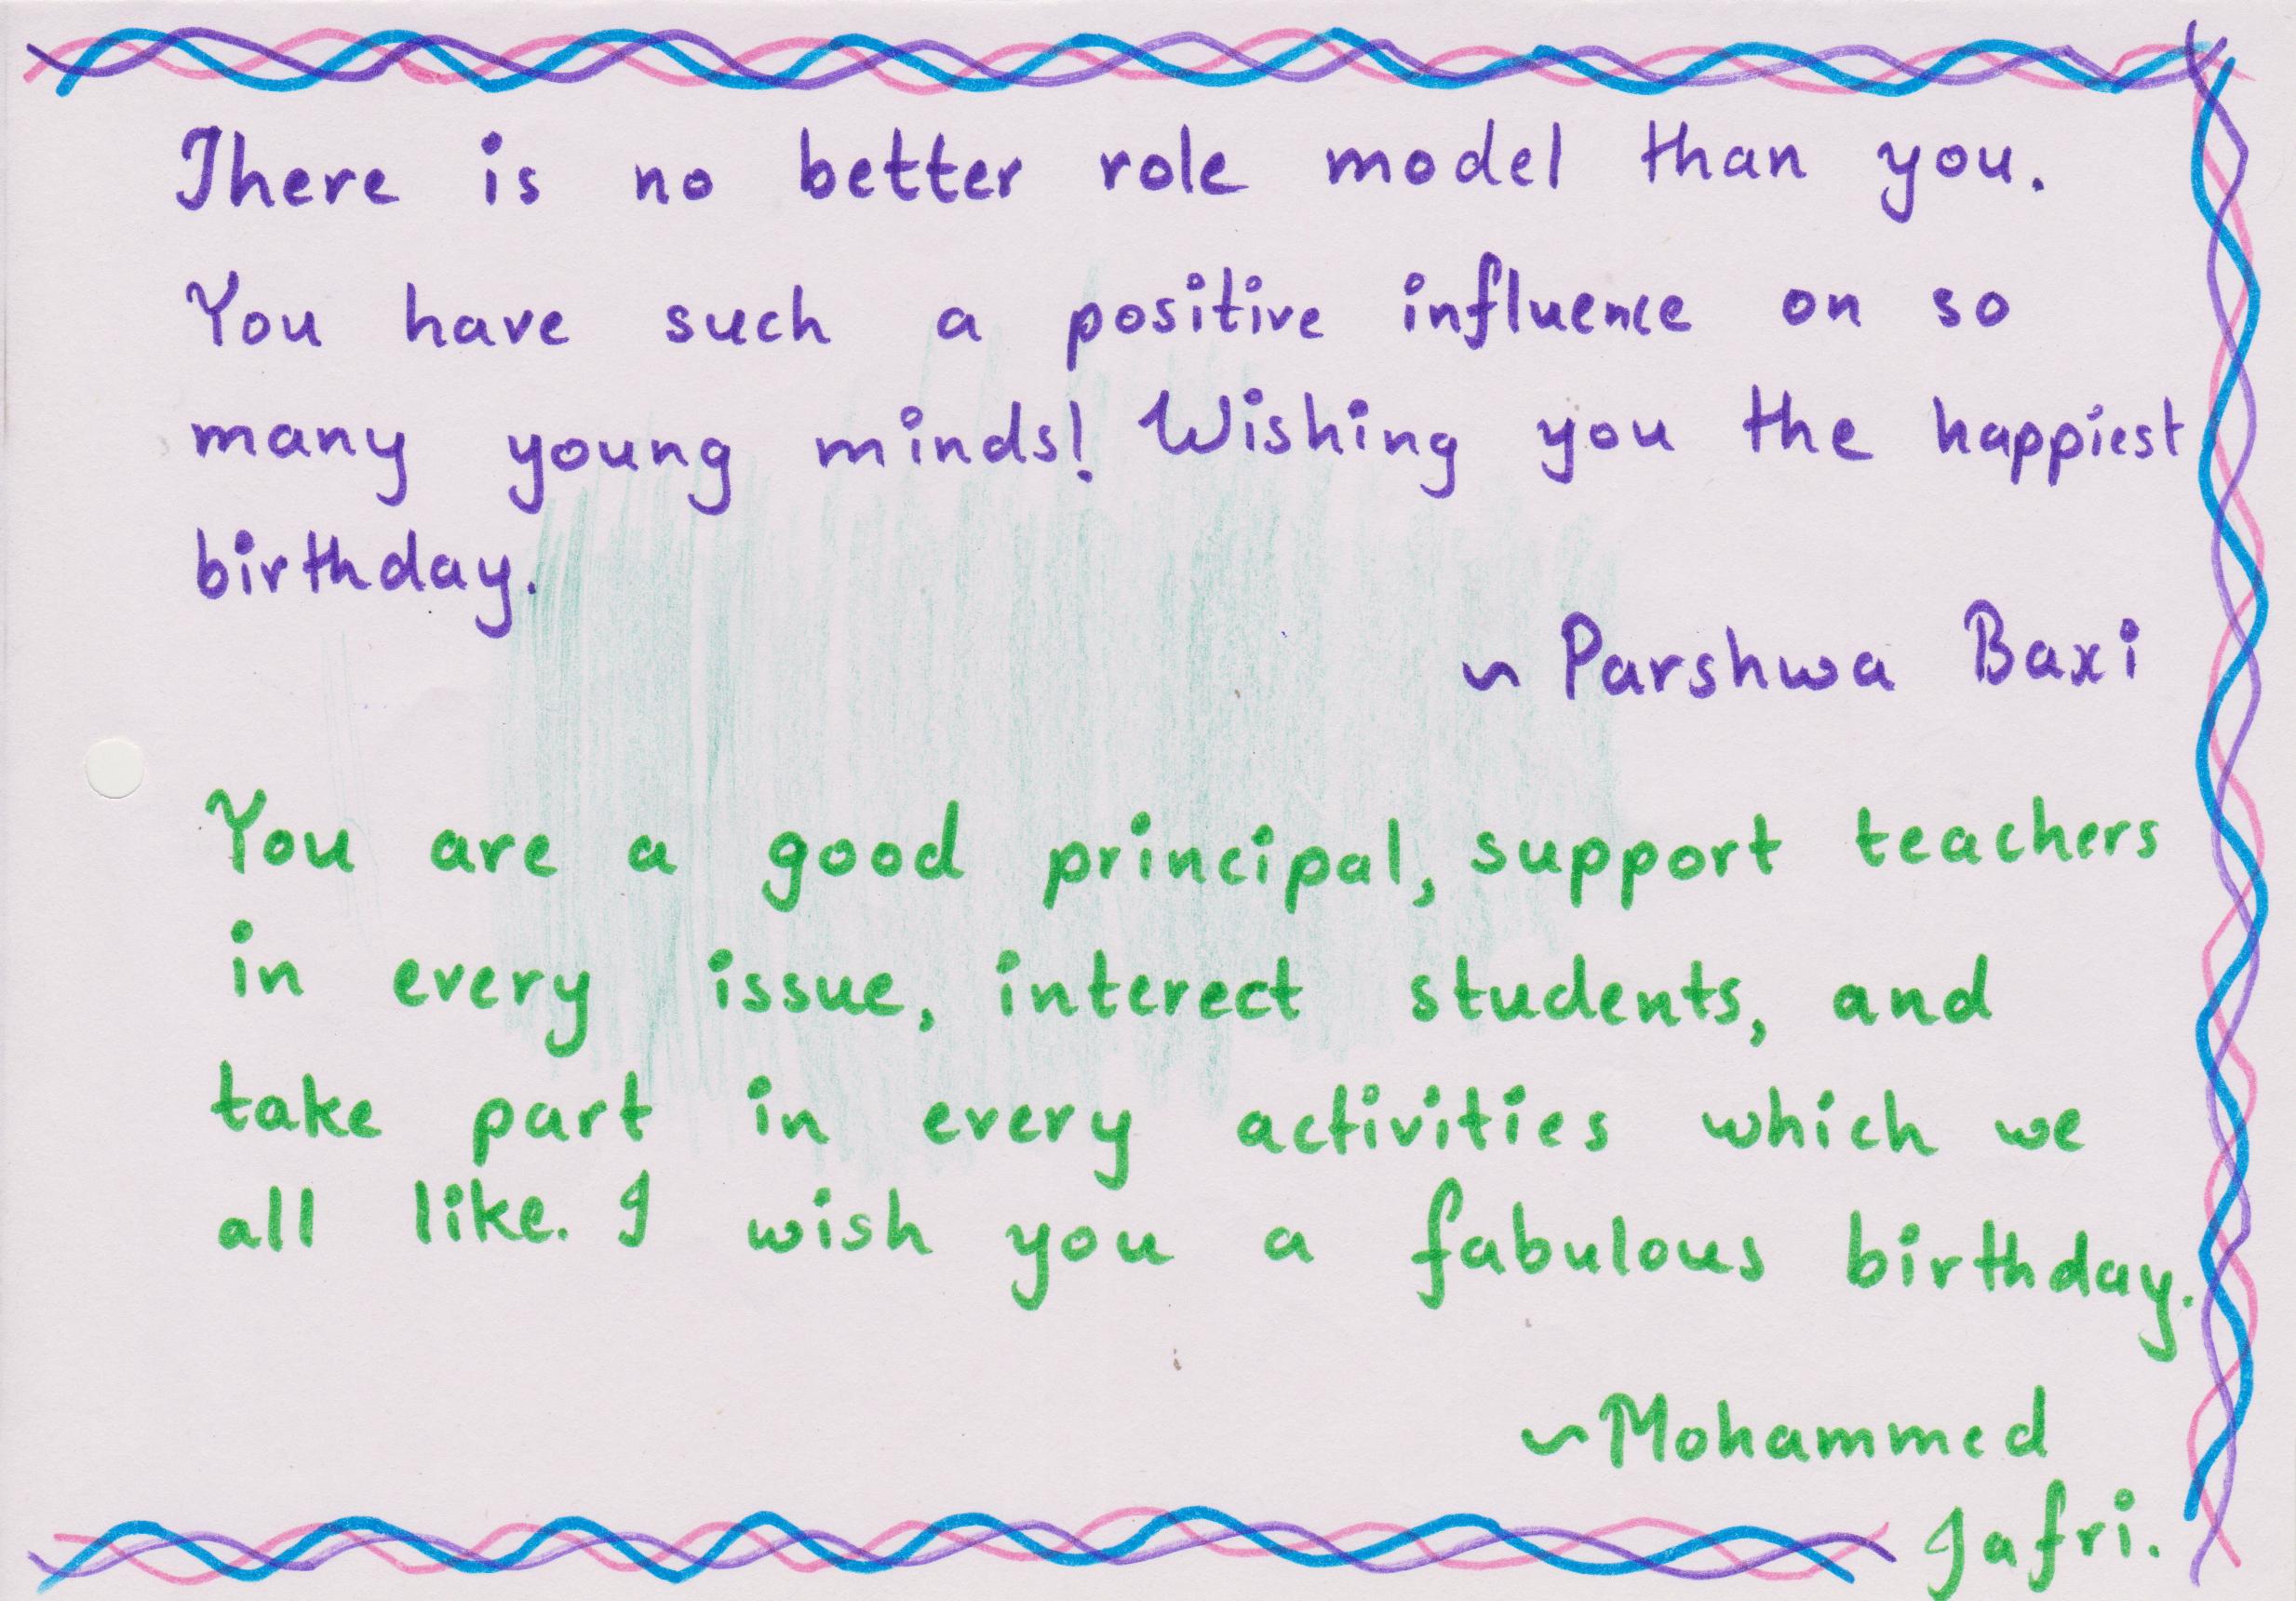 There is no better role model than you.
You have such a positive influence on so
many young minds! Wishing you the happiest
birthday.
~ Parshwa Baxi
You are a good principal, support teachers
in every issue, interect students, and
take part in every activities which we
all like. I wish you a fabulous birthday.
~Mohammed
Jafri.